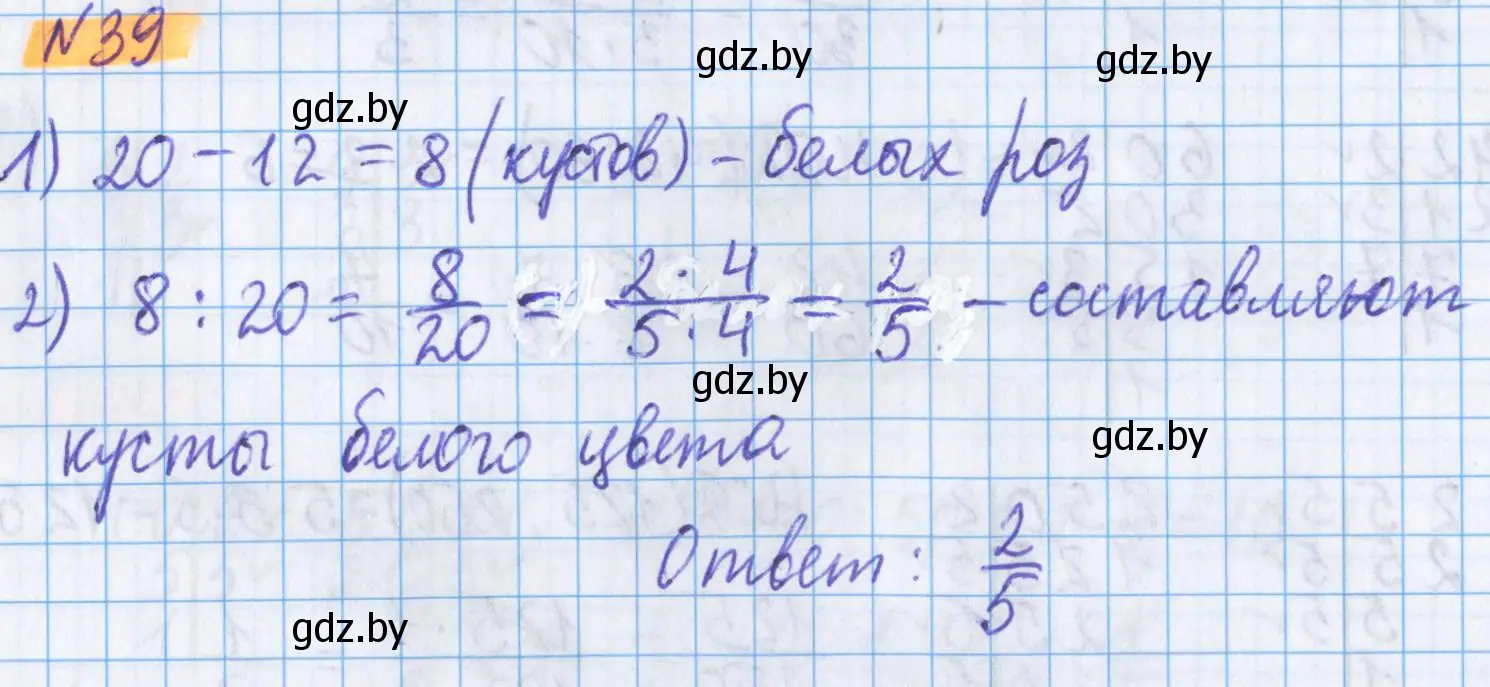 №39
gdz.by
gdz.by
gdz.by
1) 20 - 12 = 8 (кустов) - белых роз
2) 8 : 20 = 8/20 = 2·4/5·4 = 2/5 - составляют
gdz.by
кусты белого цвета
gdz.by
Ответ: 2/5
gdz.by